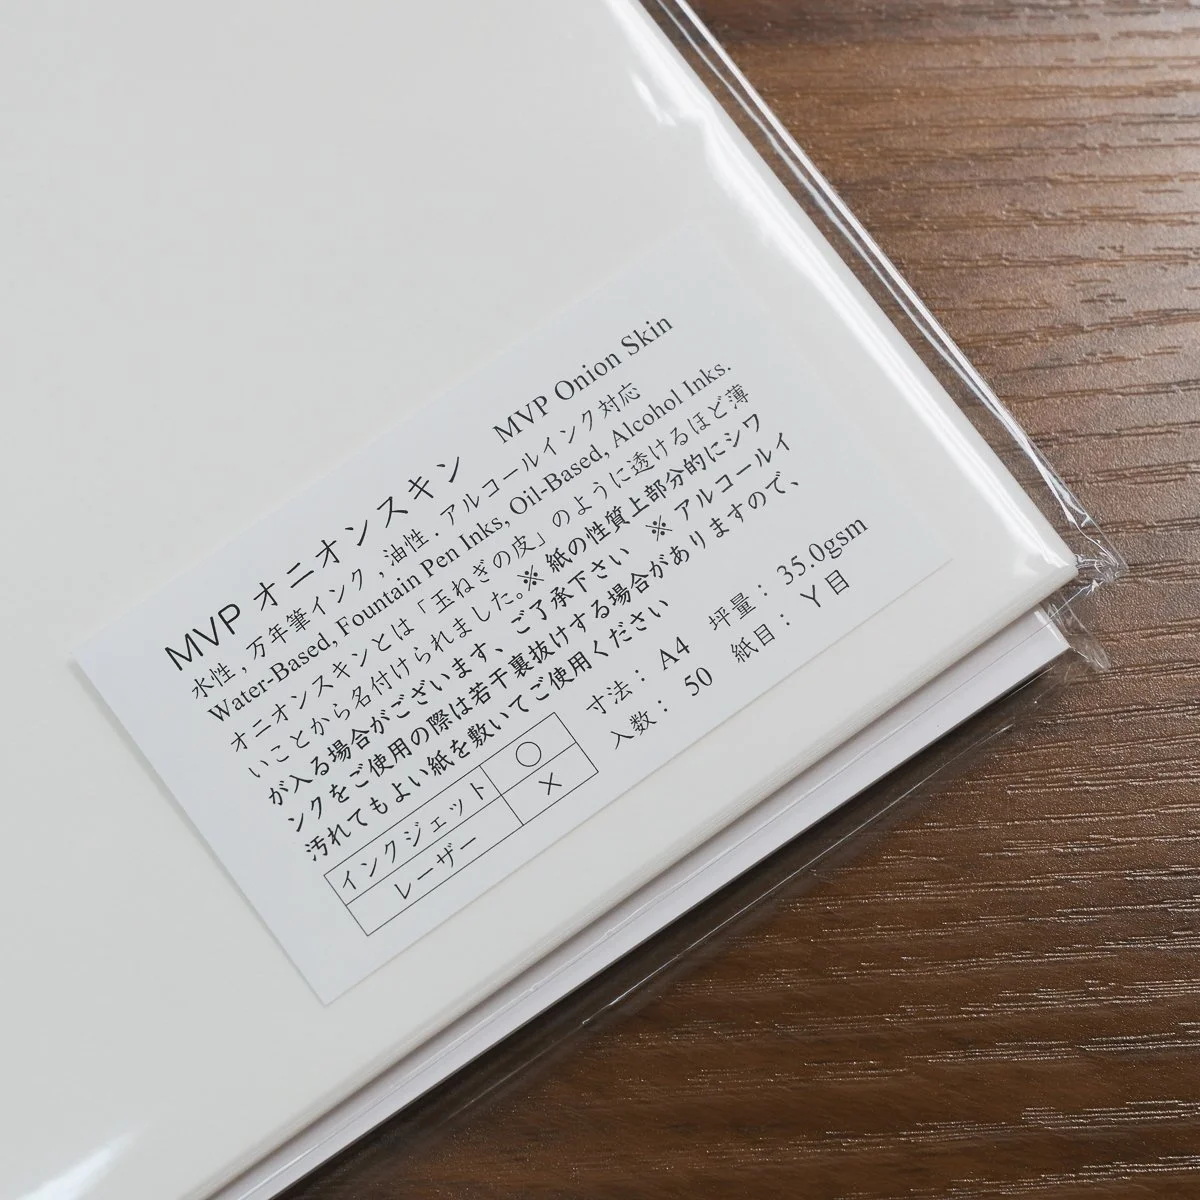 MVP オニオンスキン MVP Onion Skin
水性,万年筆インク,油性.アルコールインク対応
Water-Based, Fountain Pen Inks, Oil-Based, Alcohol Inks.
オニオンスキンとは「玉ねぎの皮」のように透けるほど薄
いことから名付けられました。※ 紙の性質上部分的にシワ
が入る場合がございます、ご了承下さい ※ アルコールイ
ンクをご使用の際は若干裏抜けする場合がありますので、
汚れてもよい紙を敷いてご使用ください
インクジェット ○ 寸法: A4 坪量: 35.0gsm
レーザー × 入数: 50 紙目: Y目